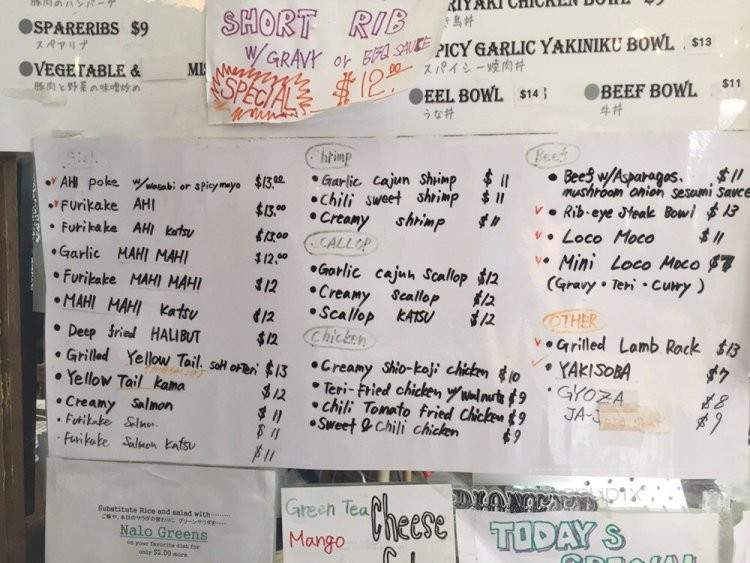 豚肉のハンバーグ
●SPARERIBS $9
スペアリブ
●VEGETABLE &
豚肉と野菜の味噌炒め
SHORT RIB
W/ GRAVY or BBQ SAUCE
SPECIAL $12.00
RIYAKI CHICKEN BOWL $9
き鳥丼
PICY GARLIC YAKINIKU BOWL $13
スパイシー焼肉丼
●EEL BOWL $14
うな丼
●BEEF BOWL $11
牛丼
• AHI poke w/wasabi or spicy mayo $13.00
• Furikake AHI $13.00
• Furikake AHI katsu $13.00
• Garlic MAHI MAHI $12.00
• Furikake MAHI MAHI $12
• MAHI MAHI katsu $12
• Deep fried HALIBUT $12
• Grilled Yellow Tail. salt or Teri $13
• Yellow Tail kama $12
• Creamy Salmon $11
• Furikake Salmon $11
• Furikake Salmon katsu $11
Shrimp
• Garlic cajun shrimp $11
• Chili sweet shrimp $11
• Creamy shrimp $11
SCALLOP
• Garlic cajun scallop $12
• Creamy scallop $12
• Scallop KATSU $12
Chicken
• Creamy shio-koji chicken $10
• Teri-fried chicken w/ walnuts $9
• Chili Tomato Fried chicken $9
• Sweet & Chili chicken $9
Beef
• Beef w/Asparagas. $11
mushroom onion sesami sauce
• Rib-eye steak Bowl $13
• Loco Moco $11
• Mini Loco Moco $7
(Gravy・Teri・Curry)
OTHER
• Grilled Lamb Rack $13
• YAKISOBA $7
• GYOZA $8
JA-J $9
Substitute Rice and salad with........
Nalo Greens
on your favorite dish for
only $2.00 more
Green Tea
Mango
Cheese
TODAY'S
SPECIAL